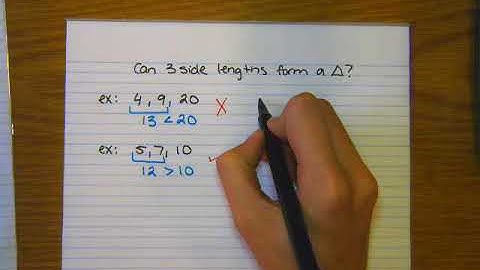 Can 3 side lengths form a △?
ex: 4, 9, 20 X
13 < 20
ex: 5, 7, 10 ✓
12 > 10